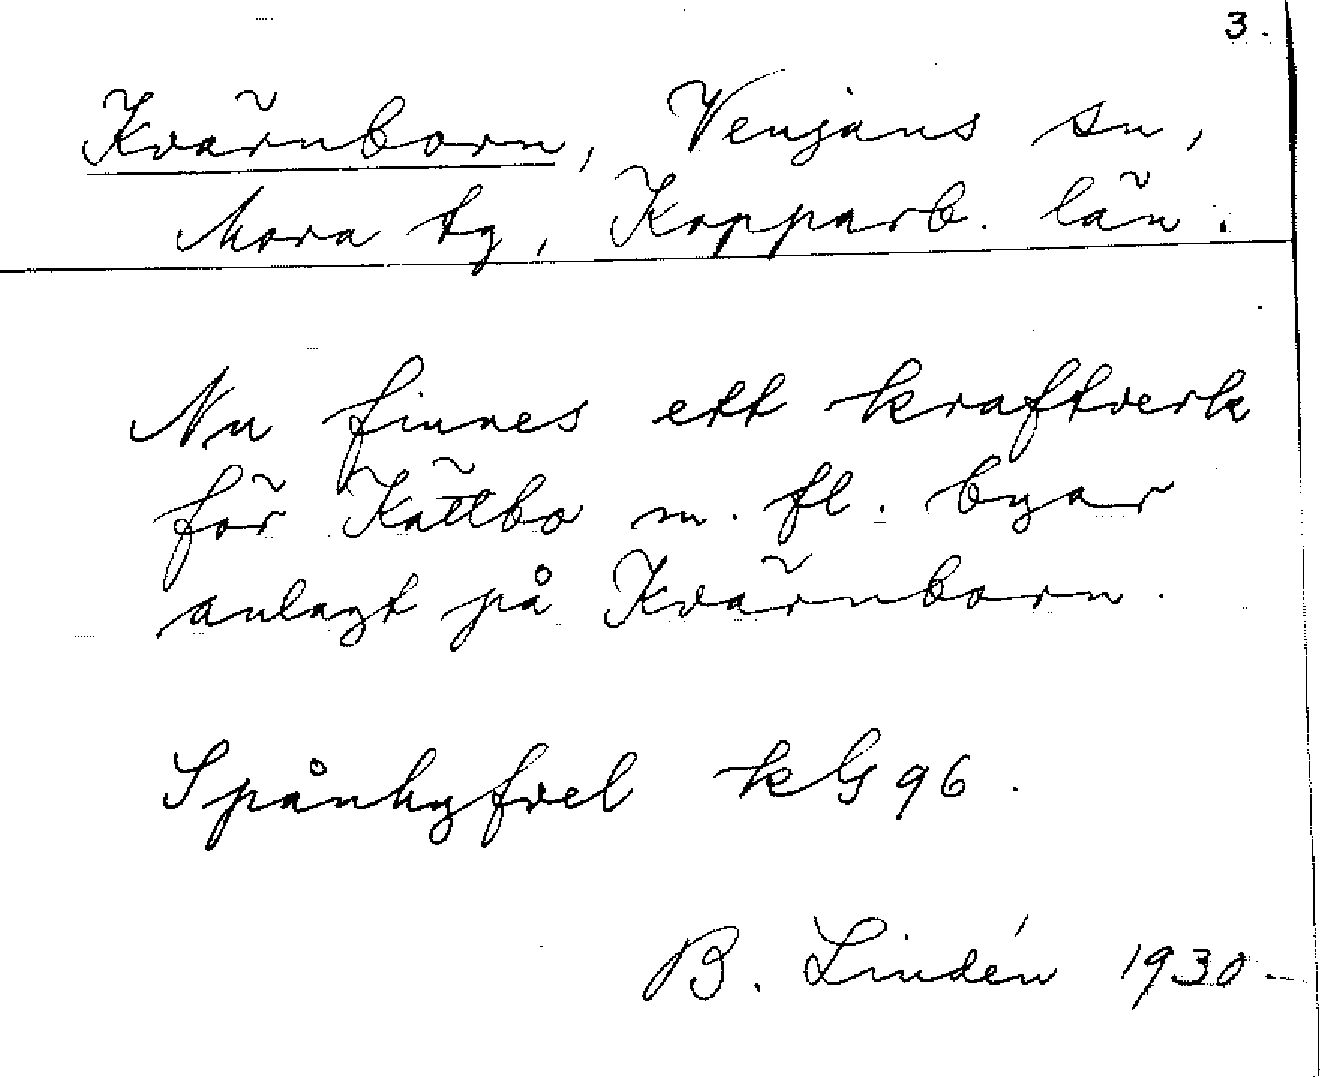 3.
Kvärnborn, Venjans sn,
Mora tg, Kopparb. län.
Nu finnes ett kraftverk
för Kättbo m. fl. byar
anlagt på Kvärnborn.
Spånhyfvel kG 96.
B. Lindén 1930